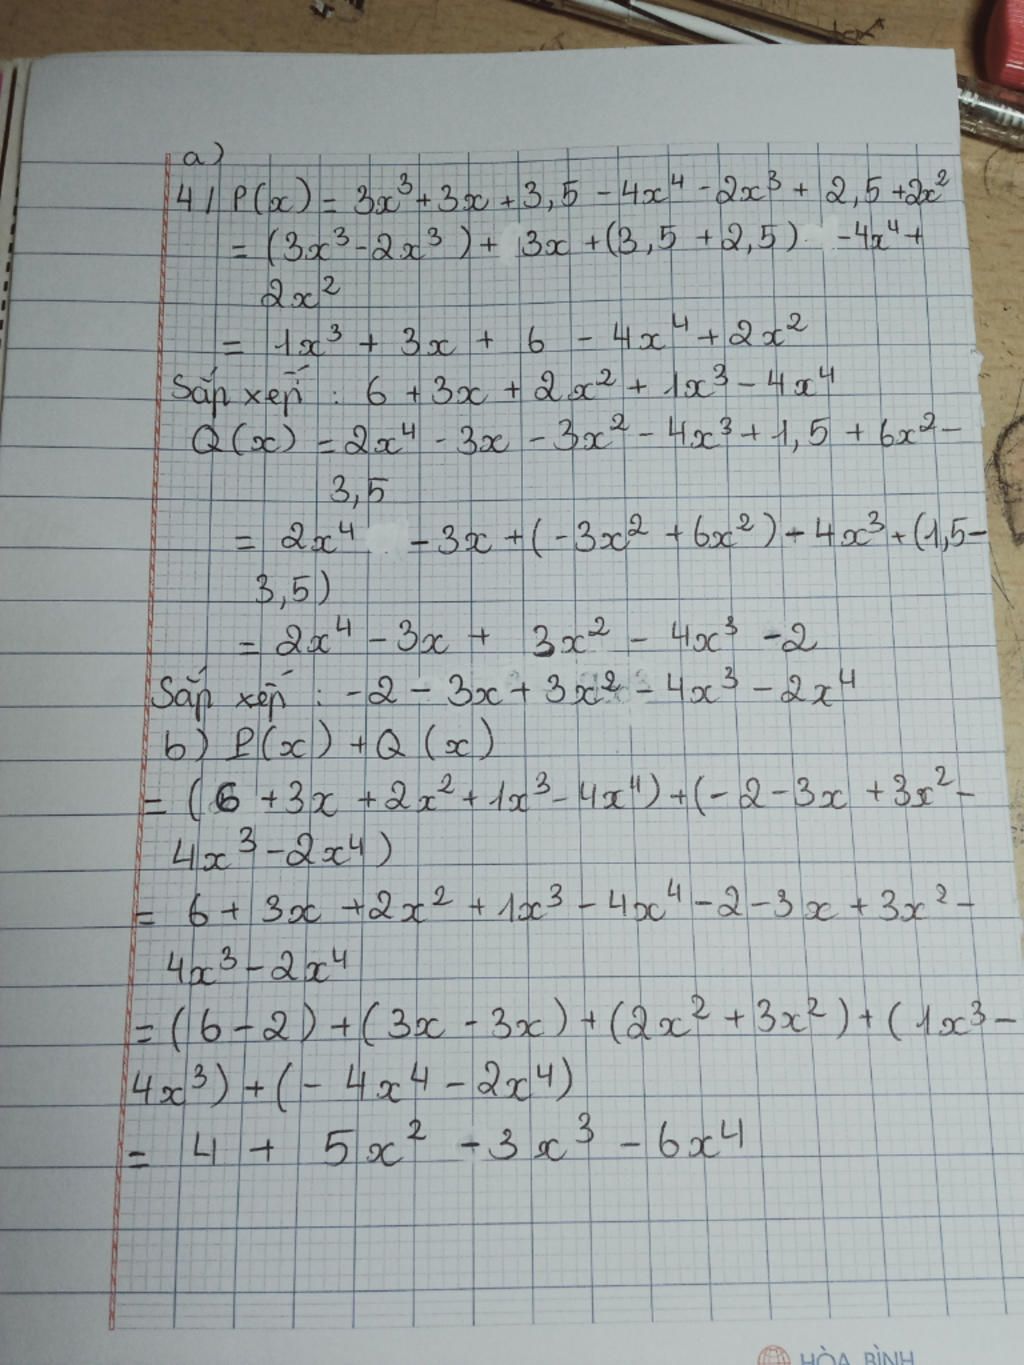 a)
4/ P(x) = 3x³ + 3x + 3,5 - 4x⁴ - 2x³ + 2,5 + 2x²
= (3x³ - 2x³) + 3x + (3,5 + 2,5) - 4x⁴ +
2x²
= 1x³ + 3x + 6 - 4x⁴ + 2x²
Sắp xếp : 6 + 3x + 2x² + 1x³ - 4x⁴
Q(x) = 2x⁴ - 3x - 3x² - 4x³ + 1,5 + 6x² -
3,5
= 2x⁴ - 3x + (-3x² + 6x²) - 4x³ + (1,5 -
3,5)
= 2x⁴ - 3x + 3x² - 4x³ - 2
Sắp xếp : -2 - 3x + 3x² - 4x³ - 2x⁴
b) P(x) + Q(x)
= (6 + 3x + 2x² + 1x³ - 4x⁴) + (-2 - 3x + 3x² -
4x³ - 2x⁴)
= 6 + 3x + 2x² + 1x³ - 4x⁴ - 2 - 3x + 3x² -
4x³ - 2x⁴
= (6 - 2) + (3x - 3x) + (2x² + 3x²) + (1x³ -
4x³) + (-4x⁴ - 2x⁴)
= 4 + 5x² - 3x³ - 6x⁴
HÒA BÌNH